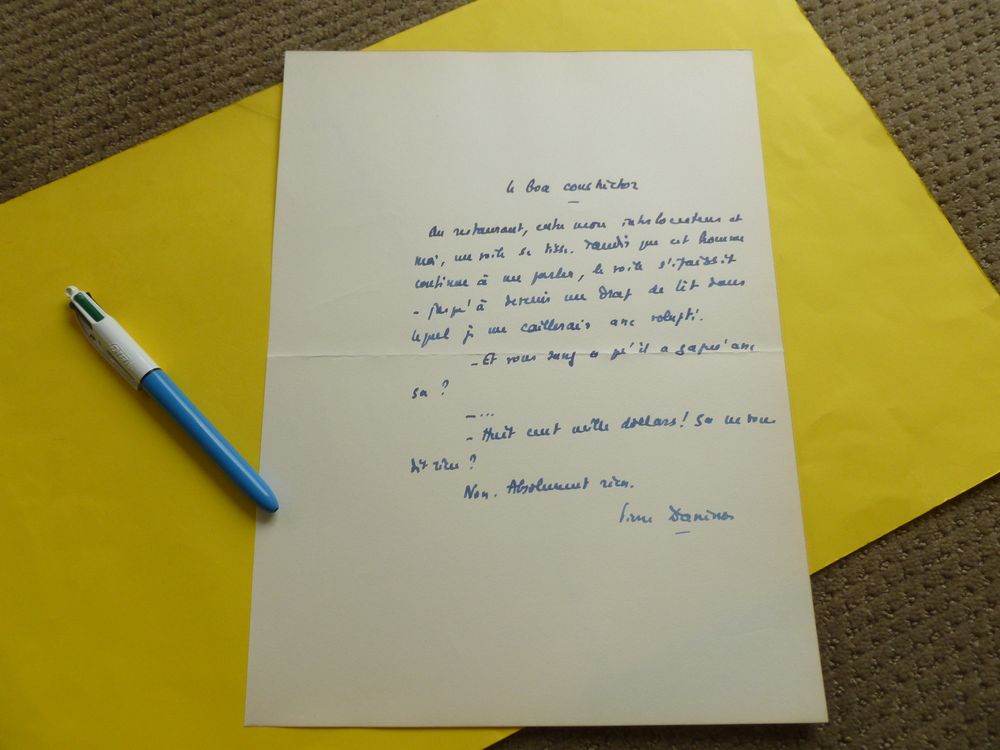 le boa constrictor
Au restaurant, entre mon interlocuteur et
moi, un voile se tisse. Tandis que cet homme
continue à me parler, le voile s'épaissit
- jusqu'à devenir un drap de lit dans
lequel je me coulerais avec volupté.
- Et vous savez ce qu'il a gagné avec
ça ?
- ...
- Huit cent mille dollars! Ça ne vous
dit rien ?
Non. Absolument rien.
Pierre Daninos